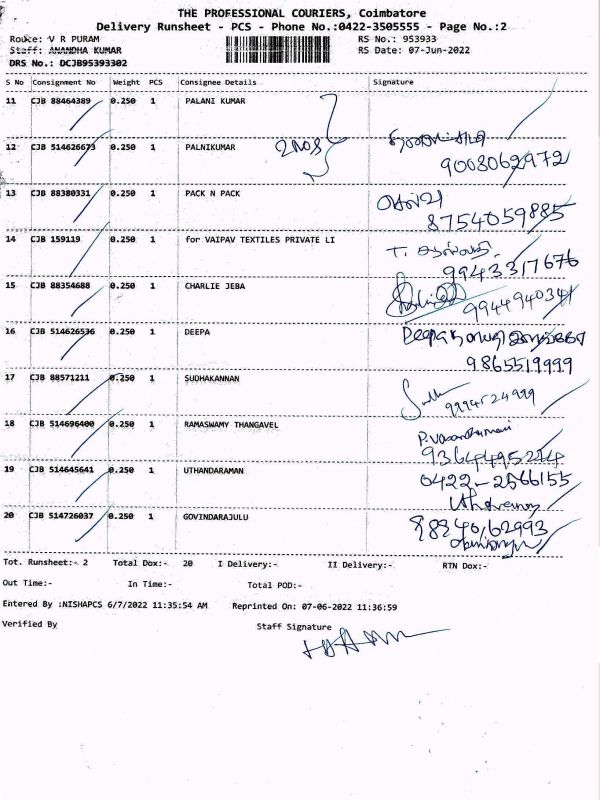 THE PROFESSIONAL COURIERS, Coimbatore
Delivery Runsheet - PCS - Phone No.:0422-3505555 - Page No.:2
Route: V R PURAM RS No.: 953933
Staff: ANANDHA KUMAR RS Date: 07-Jun-2022
DRS No.: DCJB95393302
S No Consignment No Weight PCS Consignee Details Signature
11 CJB 88464389 0.250 1 PALANI KUMAR
12 CJB 514626673 0.250 1 PALNIKUMAR 2Nos
9003062972
13 CJB 88380331 0.250 1 PACK N PACK
8754059885
14 CJB 159119 0.250 1 for VAIPAV TEXTILES PRIVATE LI
9943317676
15 CJB 88354688 0.250 1 CHARLIE JEBA
9944940341
16 CJB 514626536 0.250 1 DEEPA Deepa
9865519999
17 CJB 88571211 0.250 1 SUDHAKANNAN
18 CJB 514696400 0.250 1 RAMASWAMY THANGAVEL
19 CJB 514645641 0.250 1 UTHANDARAMAN 0422-2566155
20 CJB 514726037 0.250 1 GOVINDARAJULU
Tot. Runsheet:- 2 Total Dox:- 20 I Delivery:- II Delivery:- RTN Dox:-
Out Time:- In Time:- Total POD:-
Entered By :NISHAPCS 6/7/2022 11:35:54 AM Reprinted On: 07-06-2022 11:36:59
Verified By Staff Signature